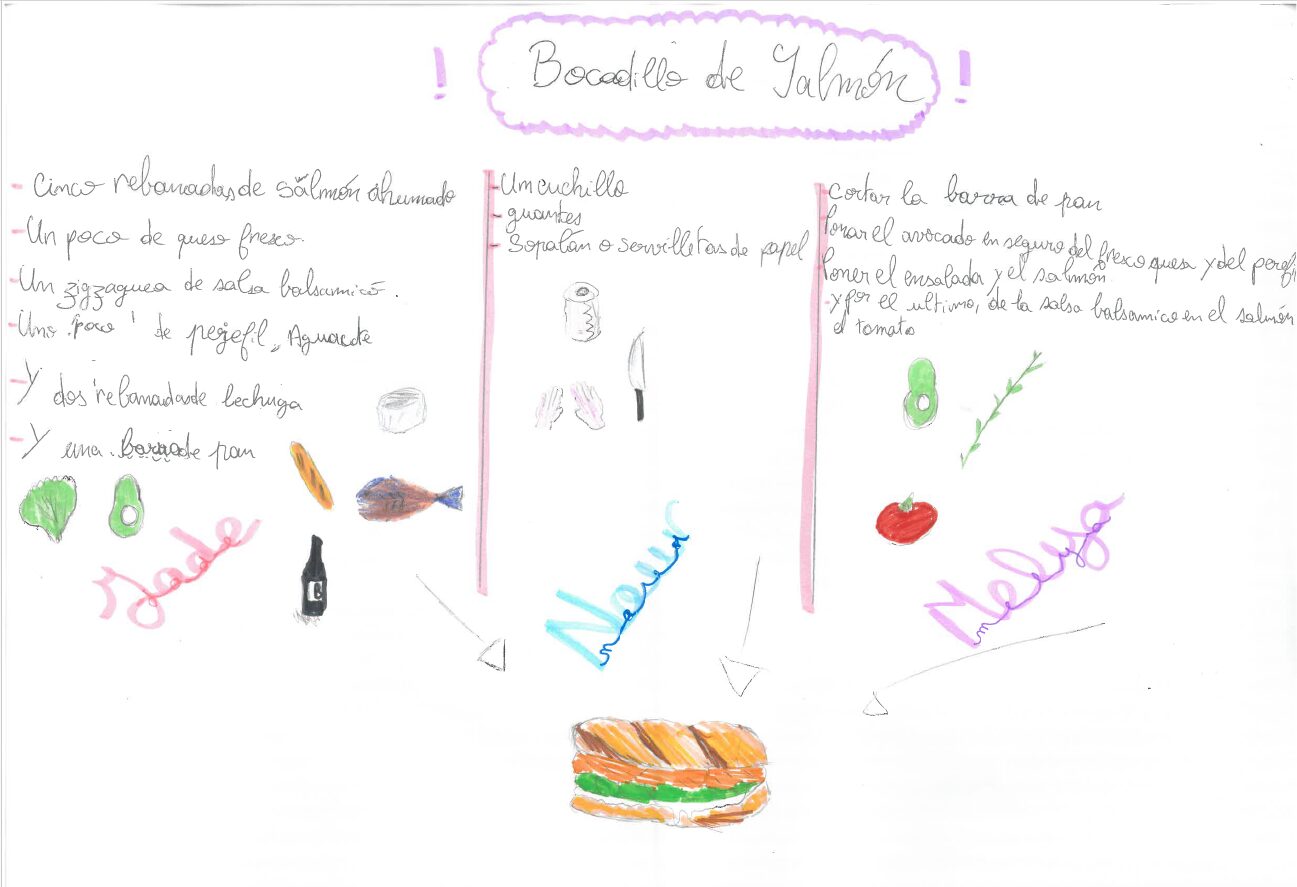 ! Bocadillo de Salmón !
- Cinco rebanadas de salmón ahumado
- Un poco de queso fresco.
- Un zigzaguea de salsa balsamico.
- Uno poco de perjefil, Aguacate
- Y dos rebanadas de lechuga
- Y una barra de pan
Jade
- Un cuchillo
- guantes
- Sopalán o servilletas de papel
Naur
naur
- cortar la barra de pan
- Ponar el avocado en seguro del fresco quesa y del
- Poner el ensalada y el salmón
- y por el ultimo, de la salsa balsamico en el salmón
el tomato
Meleyza
meleyza